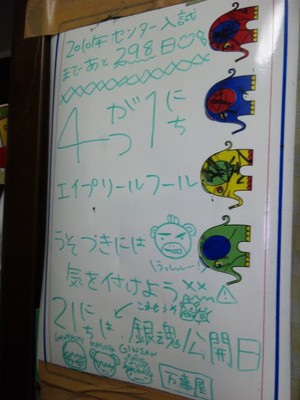 2010年センター入試
まであと298日
4がつ1にち
エイプリールフール
うそつきには
気を付けよう
21にちは、銀魂公開日
GINTOKI
KAGURA
GINSAN
万事屋